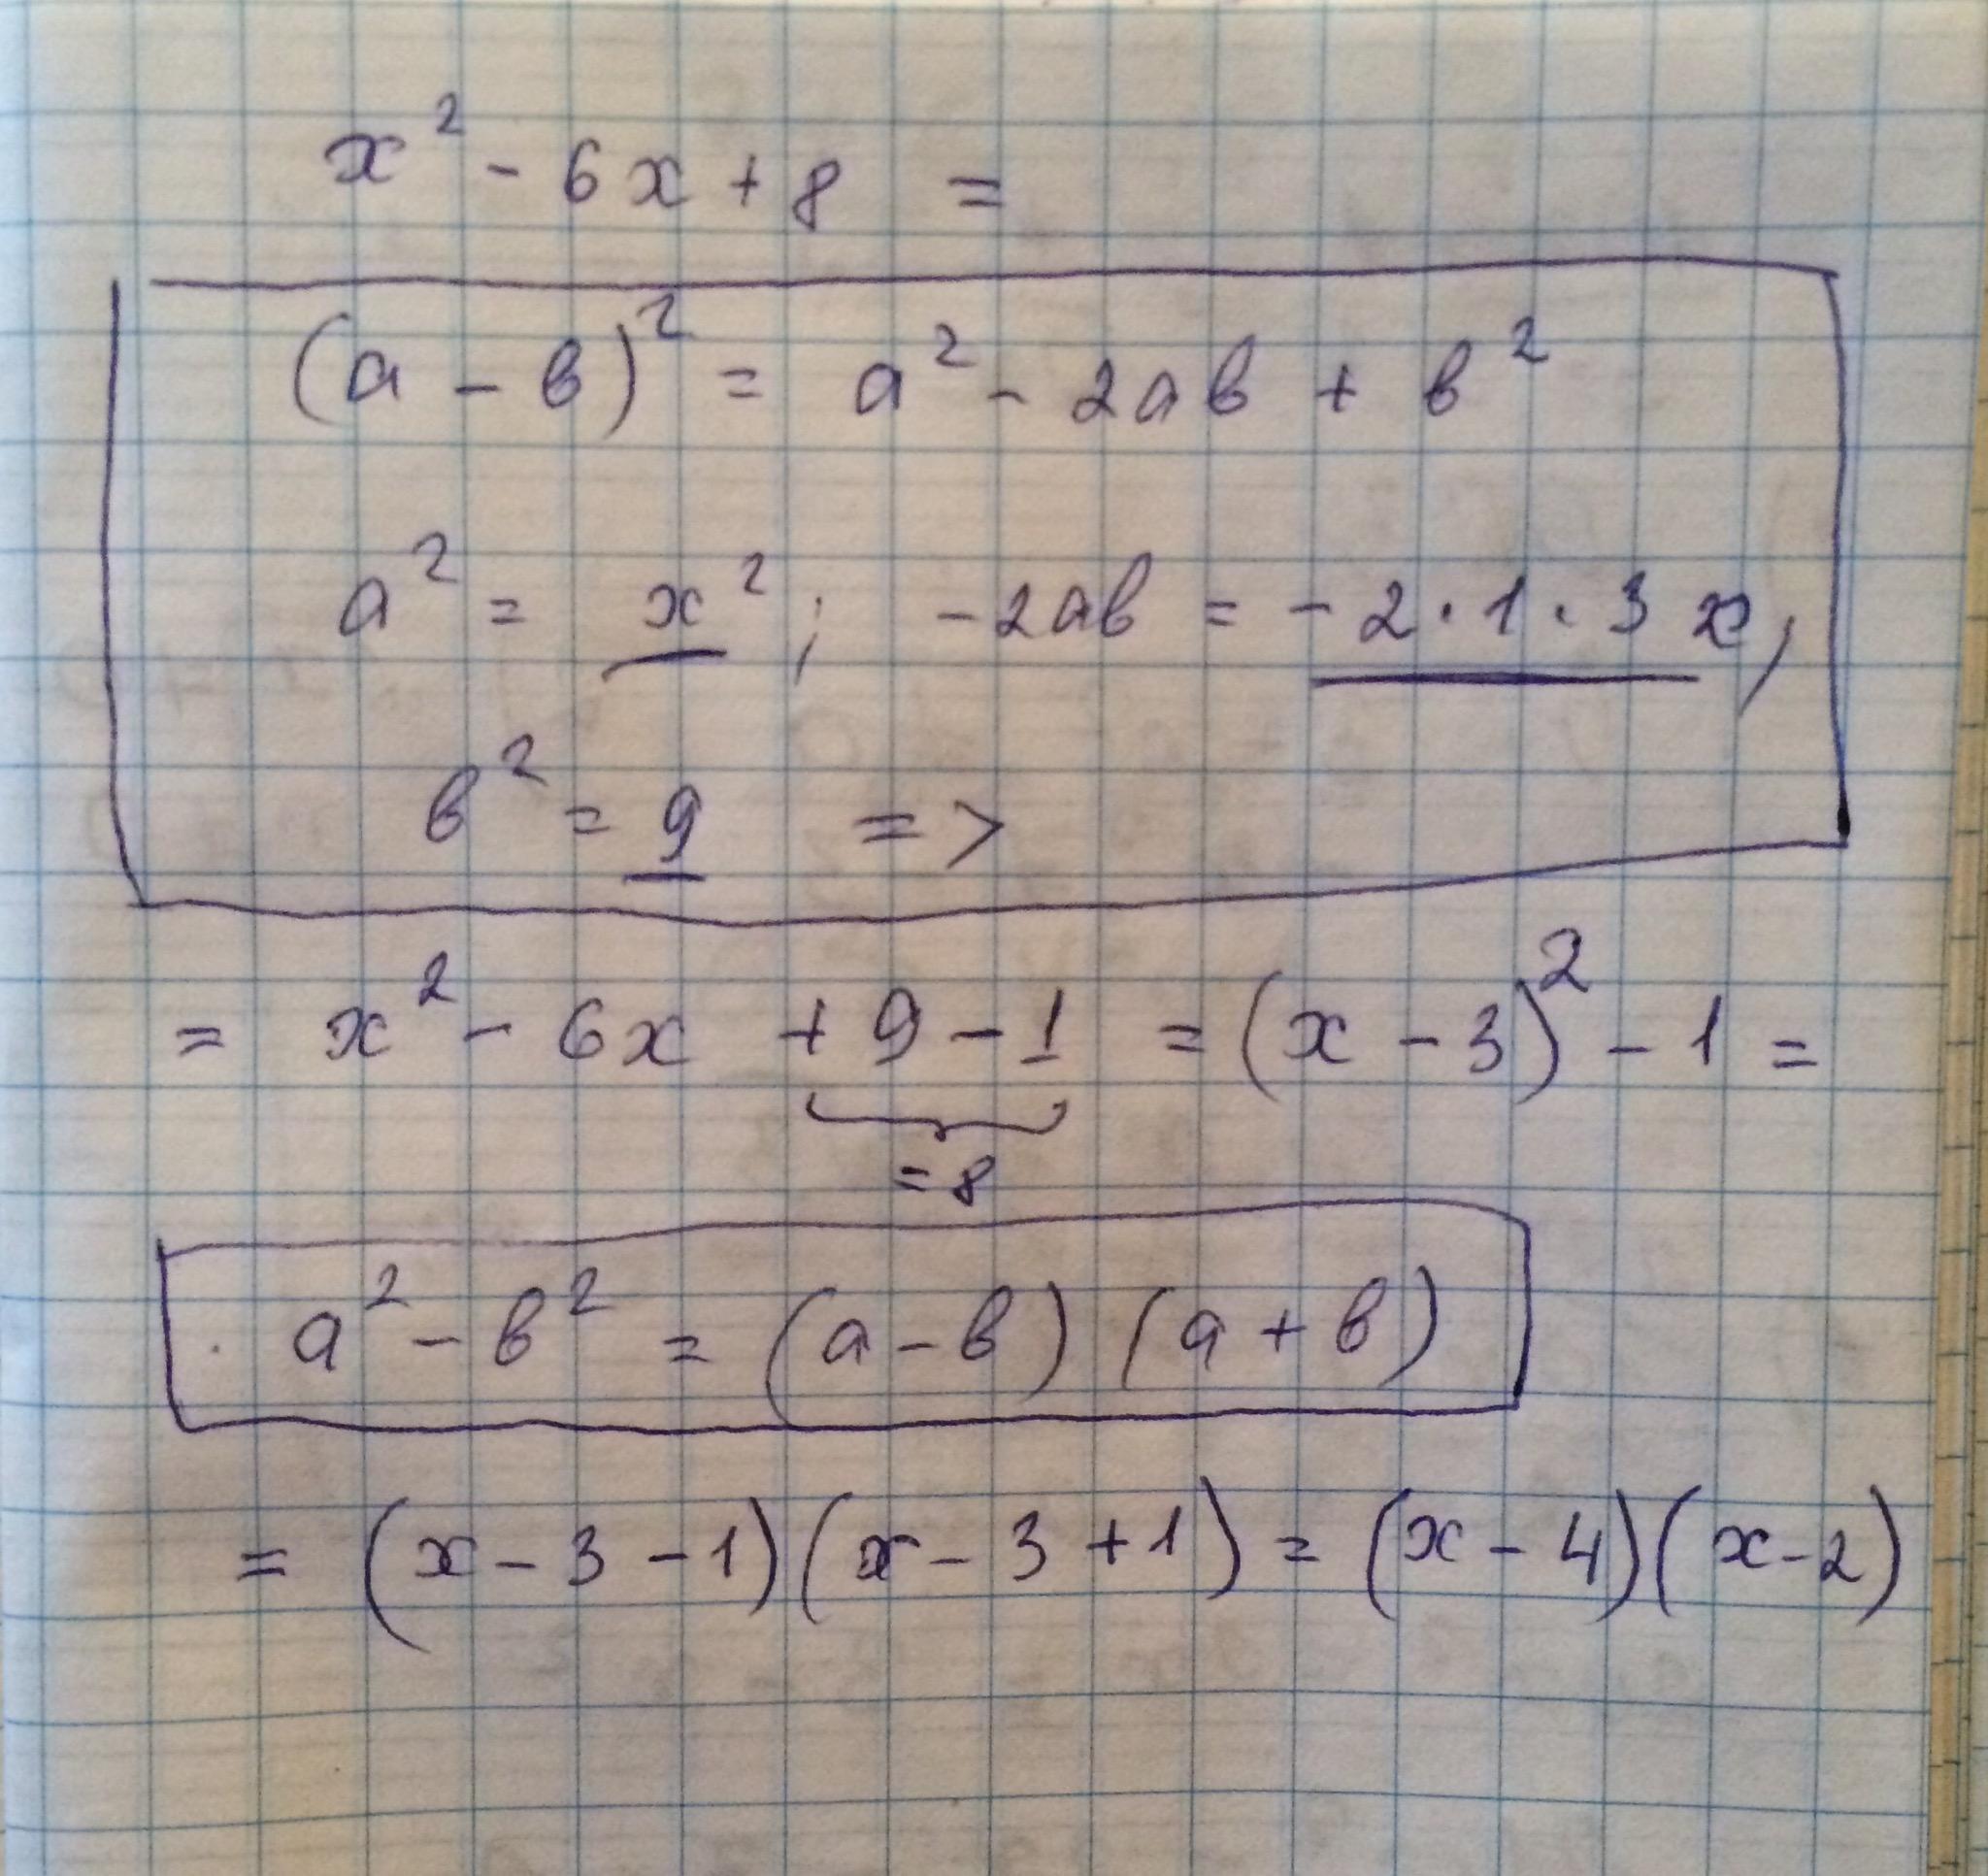 x² - 6x + 8 =
(a - в)² = a² - 2aв + в²
a² = x² ; -2aв = -2·1·3x,
в² = 9 =>
= x² - 6x + 9 - 1 = (x - 3)² - 1 =
= 8
a² - в² = (a - в) (a + в)
= (x - 3 - 1)(x - 3 + 1) = (x - 4)(x - 2)